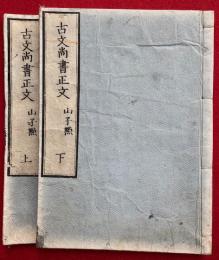 古文尚書正文
山子點
上
古文尚書正文
山子點
下